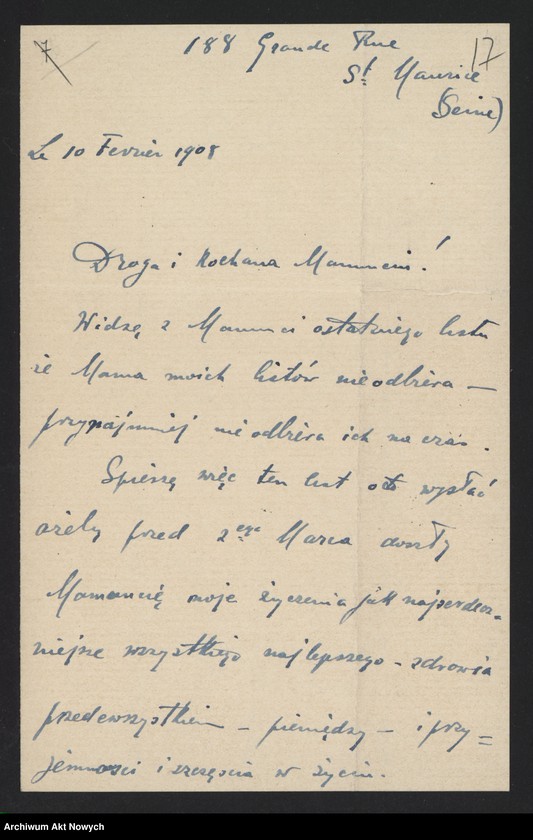 7
17
188 Grande Rue
St Maurice
(Seine)
Le 10 Fevrier 1908
Droga i kochana Mamuciu!
Widzę z Mamuci ostatniego listu
że Mama moich listów nie odbiera —
przynajmniej nie odbiera ich na czas.
Spieszę więc ten list wysłać
ażeby przed 2ego Marca doszły
Mamuncię moje życzenia jak najserdecz-
niejsze wszystkiego najlepszego - zdrowia
przedewszystkiem - pieniędzy - i przy=
jemności i szczęścia w życiu.
Archiwum Akt Nowych